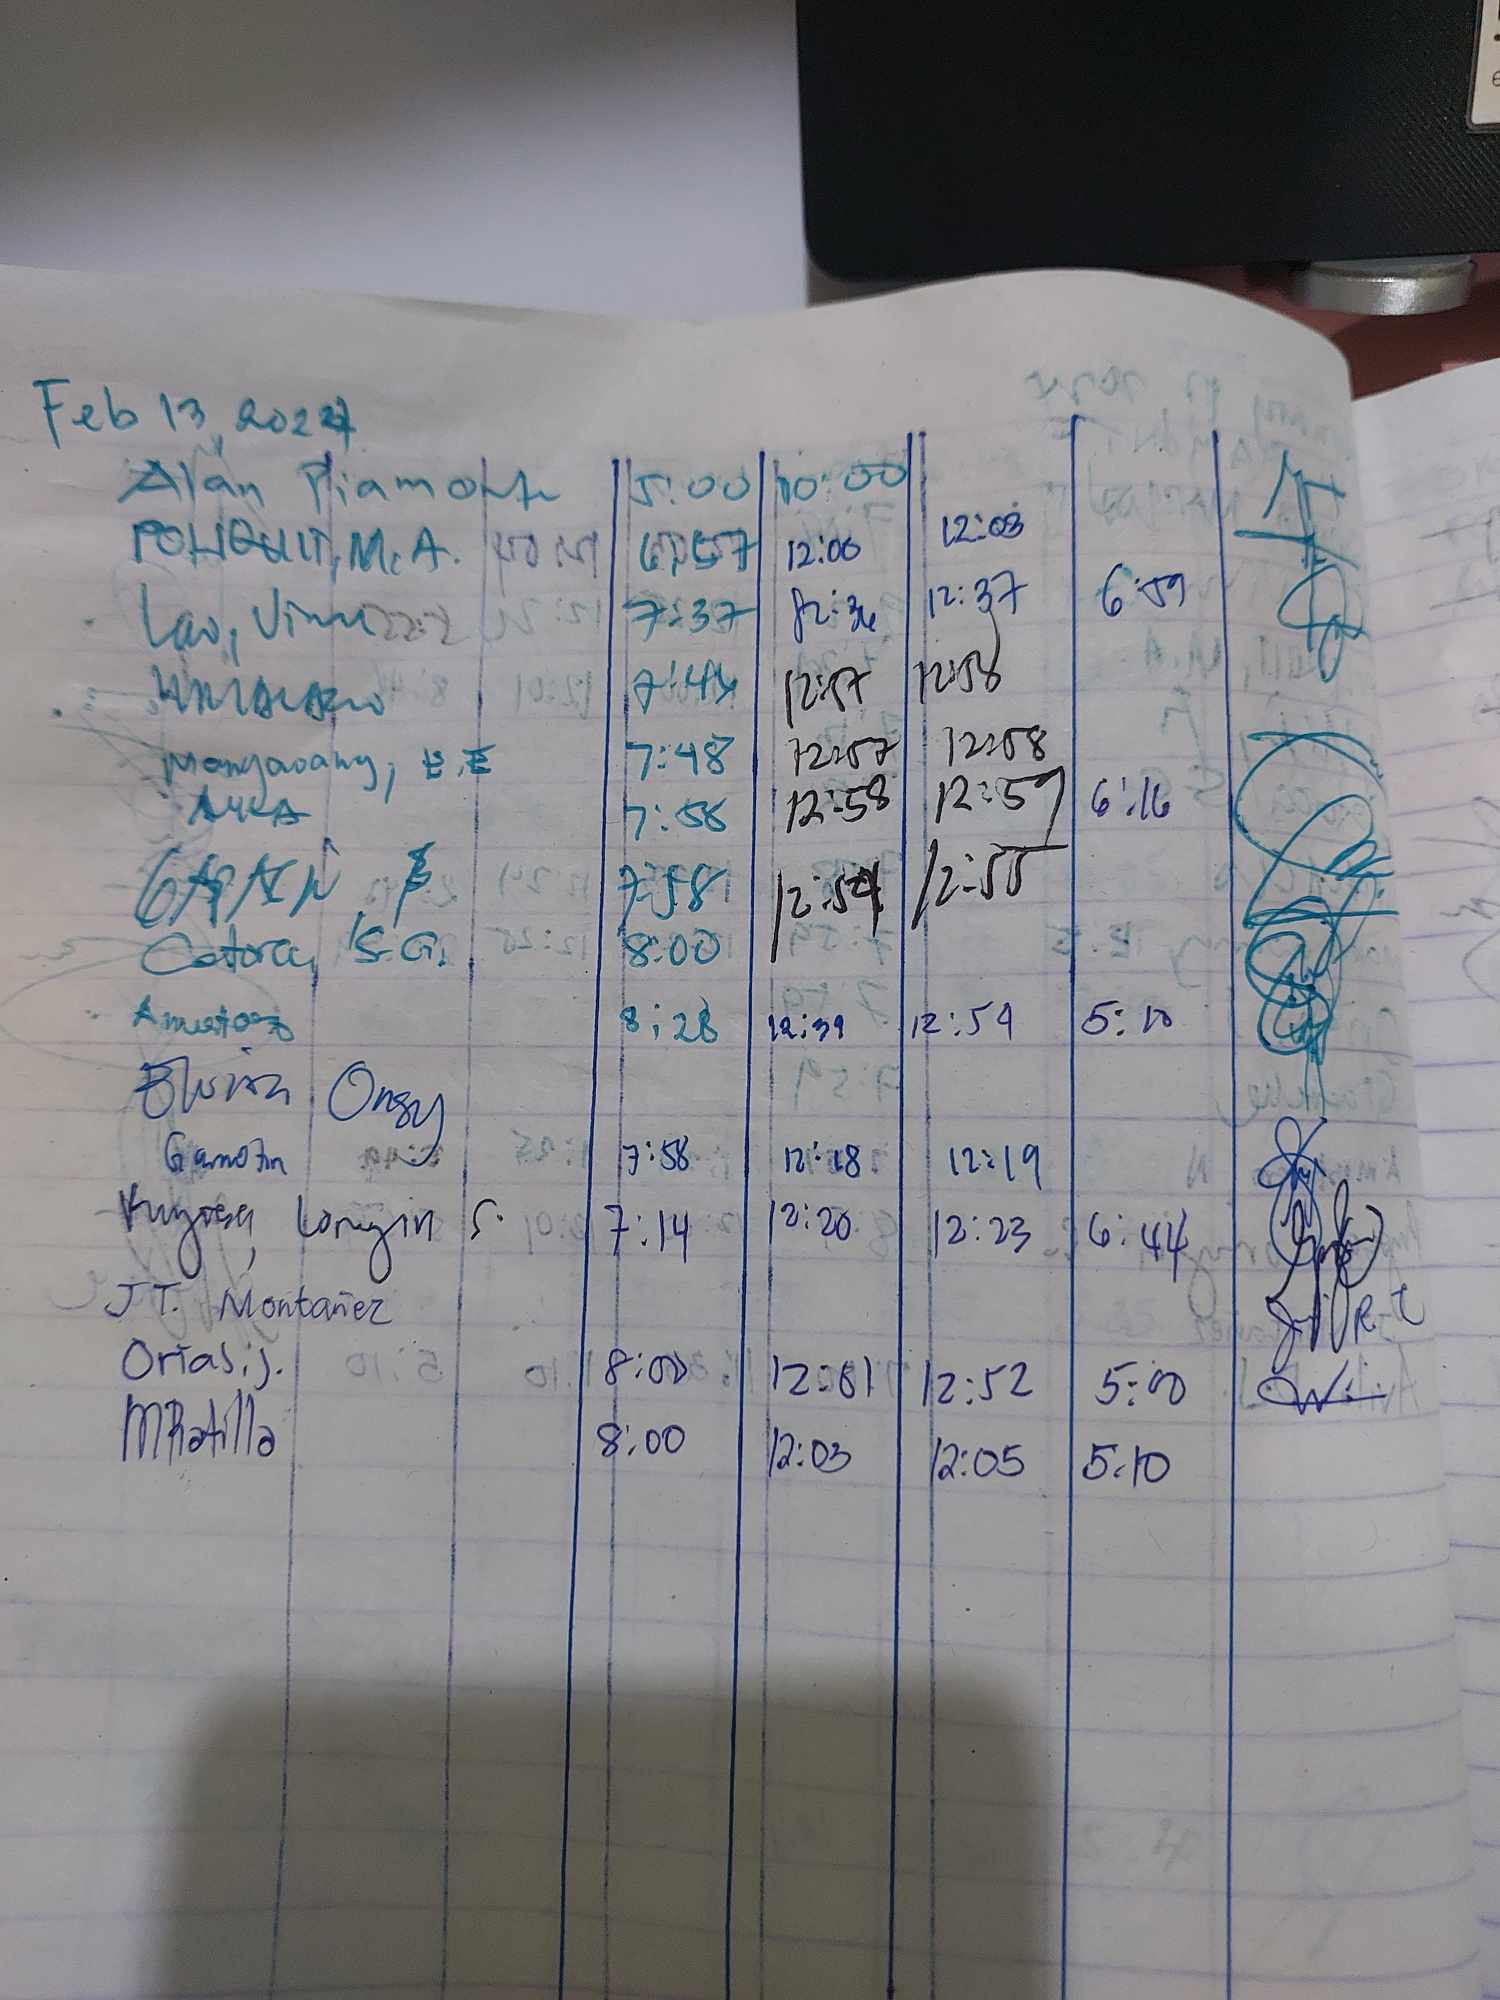 Feb 13, 2024
Alan Piamonte 5:00 10:00
POLIQUIT, M.A. 6:57 12:00 12:03
Lao, 7:37 12:36 12:37 6:59
7:44 12:57 12:58
Mangavang, E.E 7:48 12:57 12:58
7:58 12:58 12:59 6:16
GAPAN 7:58 12:54 12:55
Catora, S.G. 8:00
8:28 12:39 12:54 5:10
Elwin Ongy
Gamotin 7:58 12:18 12:19
Longin S. 7:14 12:20 12:23 6:44
J.T. Montañez
Orias, j. 8:00 12:01 12:52 5:00
MRatilla 8:00 12:03 12:05 5:10